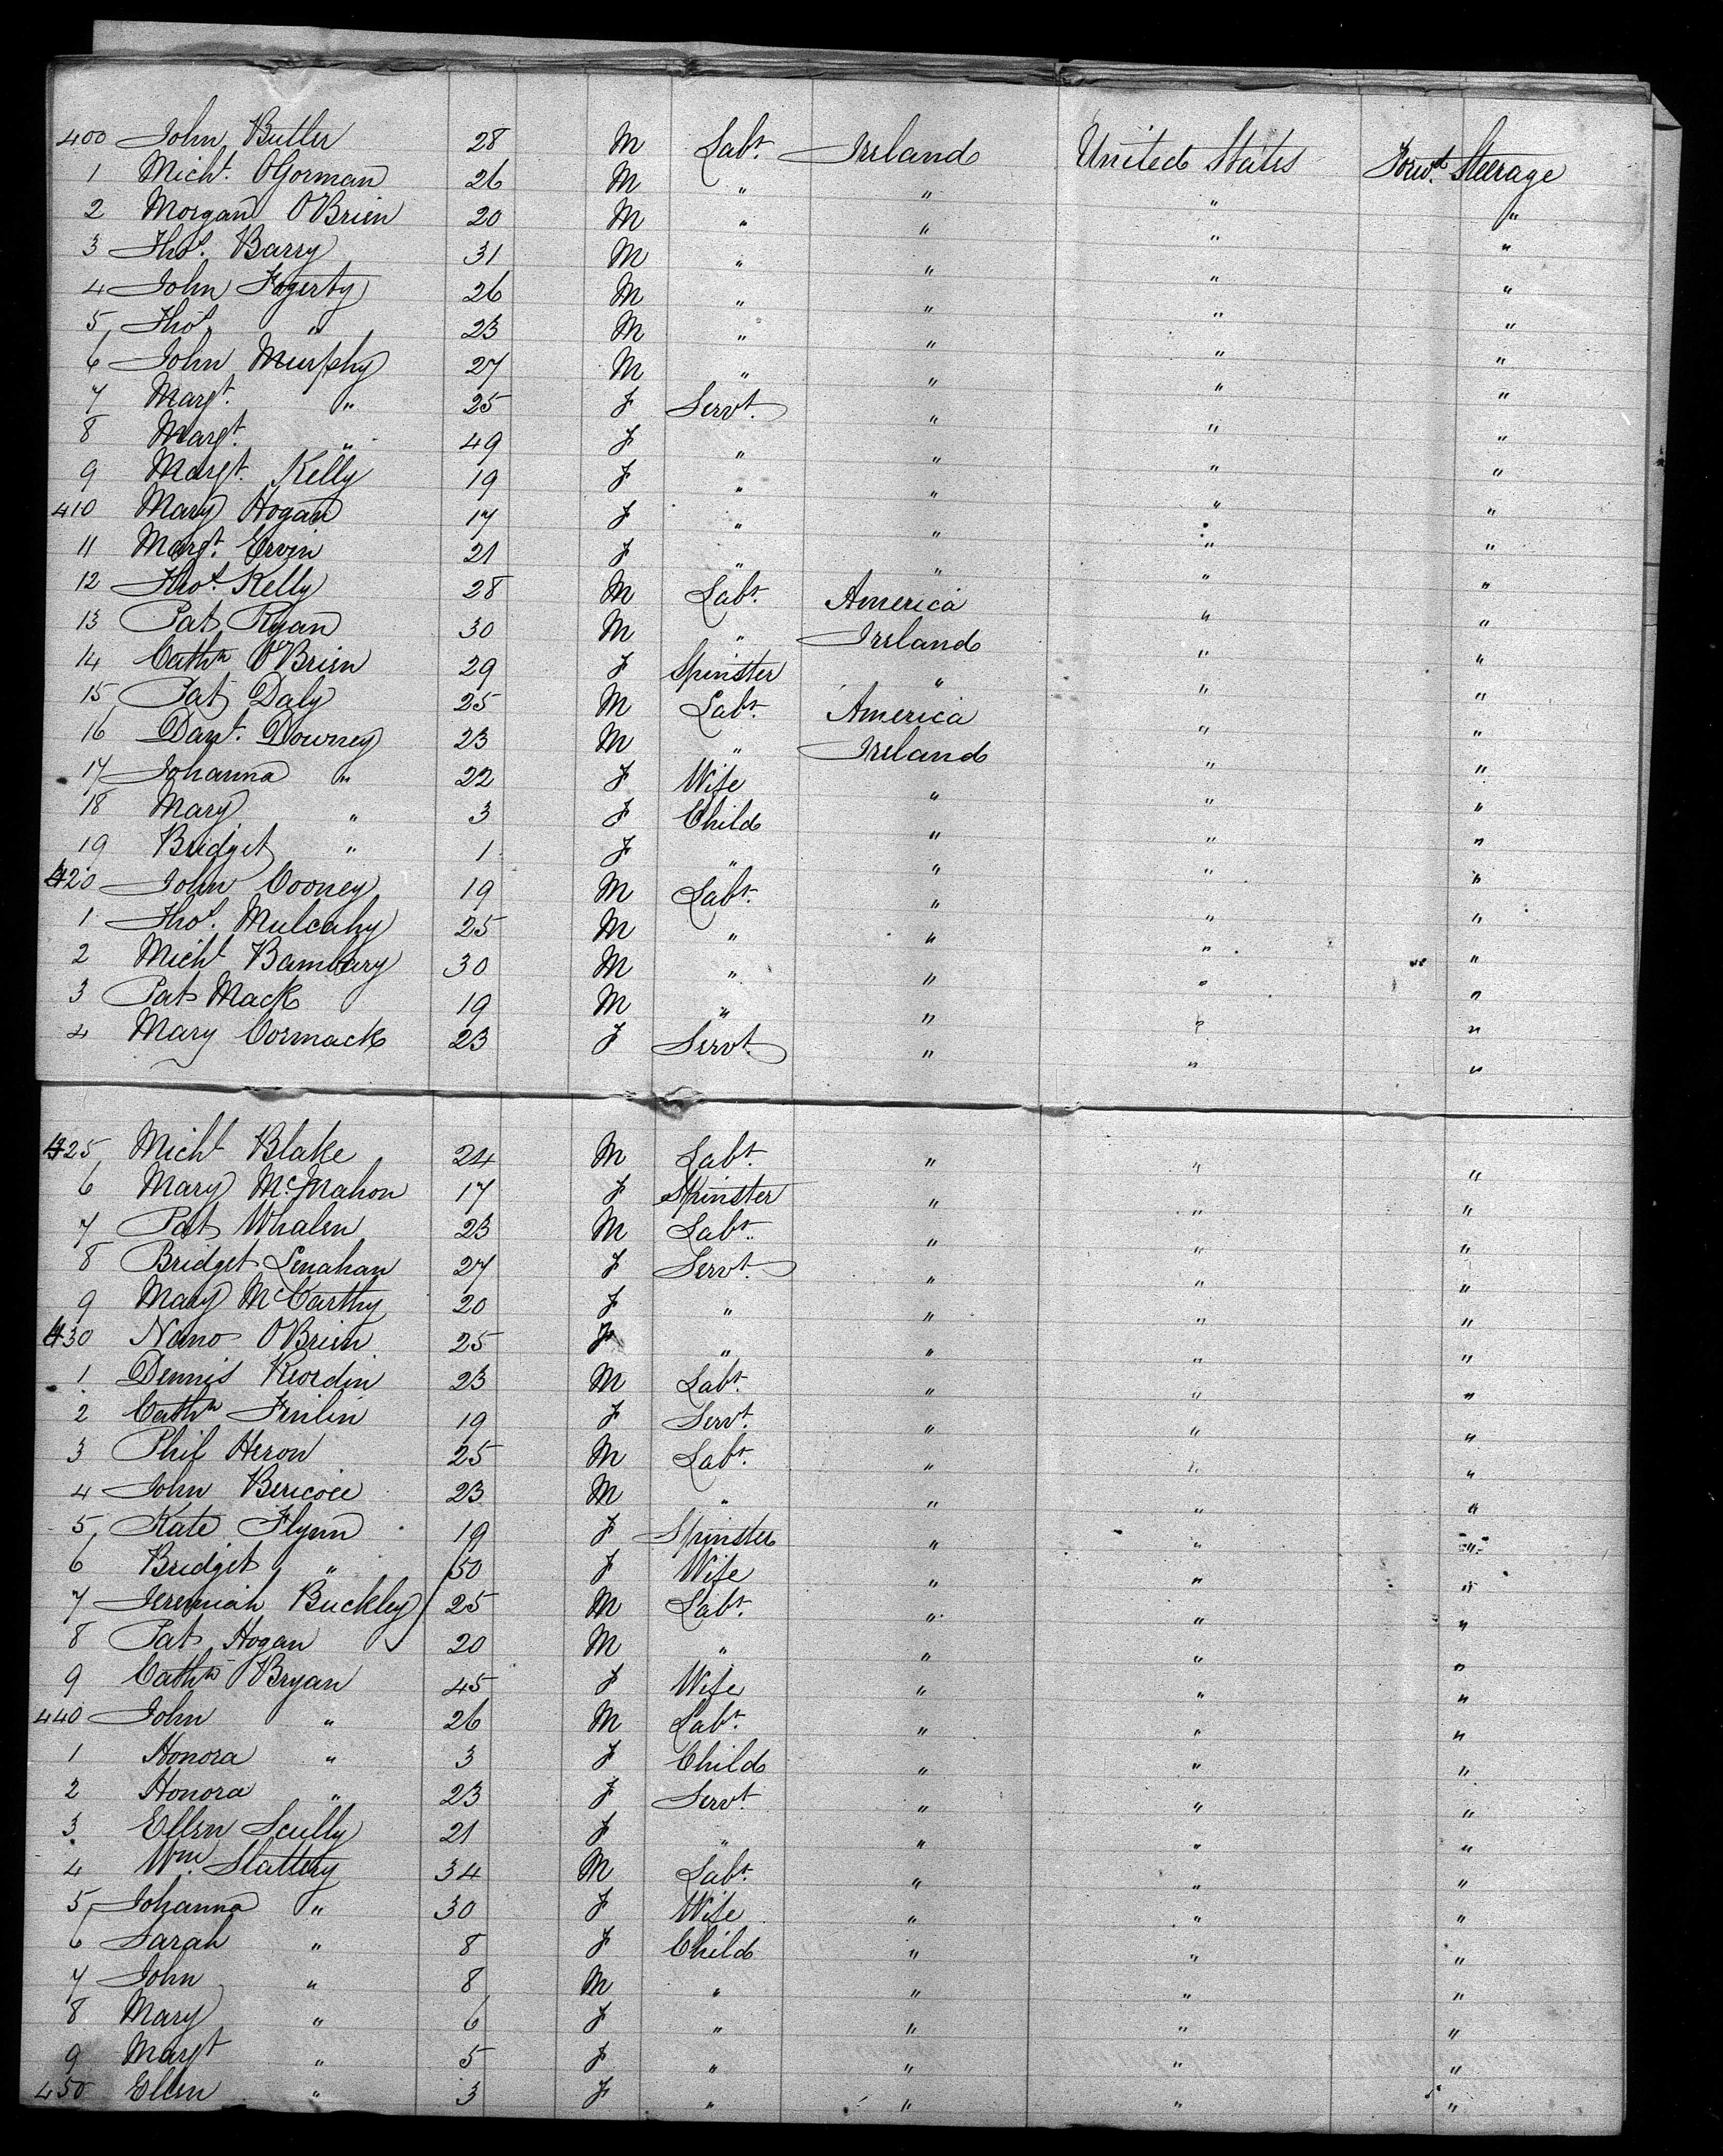 400 John Butler 28 M Labr. Ireland United States Forwd. Steerage
1 Michl. OGorman 26 M " " " "
2 Morgan OBrien 20 M " " " "
3 Thos. Barry 31 M " " " "
4 John Fogerty 26 M " " " "
5 Thos. " 23 M " " " "
6 John Murphy 27 M " " " "
7 Margt. " 25 F Servt. " " "
8 Margt. " 49 F " " " "
9 Margt. Kelly 19 F " " " "
410 Mary Hogan 17 F " " " "
11 Margt. Ervin 21 F " " " "
12 Thos. Kelly 28 M Labr. America " "
13 Pat Ryan 30 M " Ireland " "
14 Cathn OBrien 29 F Spinster " " "
15 Pat Daly 25 M Labr. America " "
16 Danl. Downey 23 M " Ireland " "
17 Johanna " 22 F Wife " " "
18 Mary " 3 F Child " " "
19 Bridget " 1 F " " " "
420 John Cooney 19 M Labr. " " "
1 Thos. Mulcahy 25 M " " " "
2 Michl Bambury 30 M " " " "
3 Pat Mack 19 M " " " "
4 Mary Cormack 23 F Servt. " " "
425 Michl Blake 24 M Labr. " " "
6 Mary McMahon 17 F Spinster " " "
7 Pat Whalen 23 M Labr. " " "
8 Bridget Lenahan 27 F Servt. " " "
9 Mary McCarthy 20 F " " " "
430 Nano OBrien 25 F " " " "
1 Dennis Reordin 23 M Labr. " " "
2 Cathn 19 F Servt. " " "
3 Phil Heron 25 M Labr. " " "
4 John 23 M " " " "
5 Kate Flynn 19 F Spinster " " "
6 Bridget " 50 F Wife " " "
7 Jeremiah Buckley 25 M Labr. " " "
8 Pat Hogan 20 M " " " "
9 Cathn Bryan 45 F Wife " " "
440 John " 26 M Labr. " " "
1 Honora " 3 F Child " " "
2 Honora " 23 F Servt. " " "
3 Ellen Scully 21 F " " " "
4 Wm. Slattery 34 M Labr. " " "
5 Johanna " 30 F Wife " " "
6 Sarah " 8 F Child " " "
7 John " 8 M " " " "
8 Mary " 6 F " " " "
9 Margt " 5 F " " " "
450 Ellen " 3 F " " " "